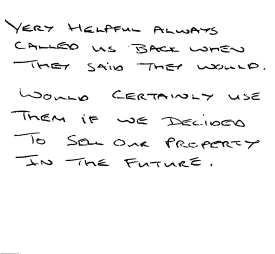 VERY HELPFUL ALWAYS
CALLED US BACK WHEN
THEY SAID THEY WOULD.
WOULD CERTAINLY USE
THEM IF WE DECIDED
TO SELL OUR PROPERTY
IN THE FUTURE.